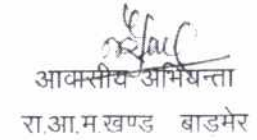 आवासीय अभियन्ता
रा.आ.म.खण्ड बाड़मेर